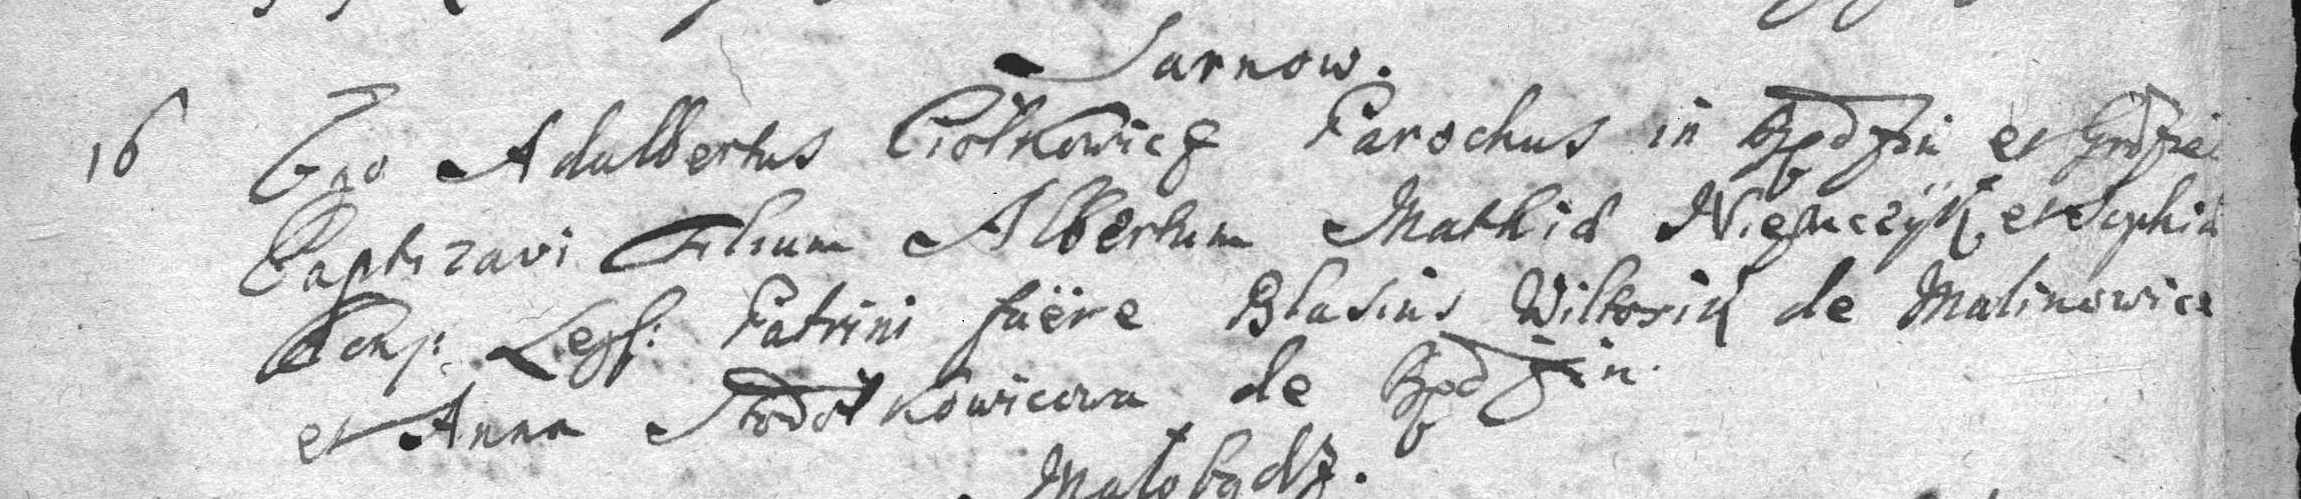 Sarnow.
16 Ego Adalbertus Ciołkowicz Parochus in Będzin et Grodziec
Baptizavi Filium Albertum Mathiæ Niemczyk et Sophiæ
Conj: Legs: Patrini fuëre Blasius Wiktorik de Malinowice
et Anna Stodołkowicowa de Będzin.
Małobądz.